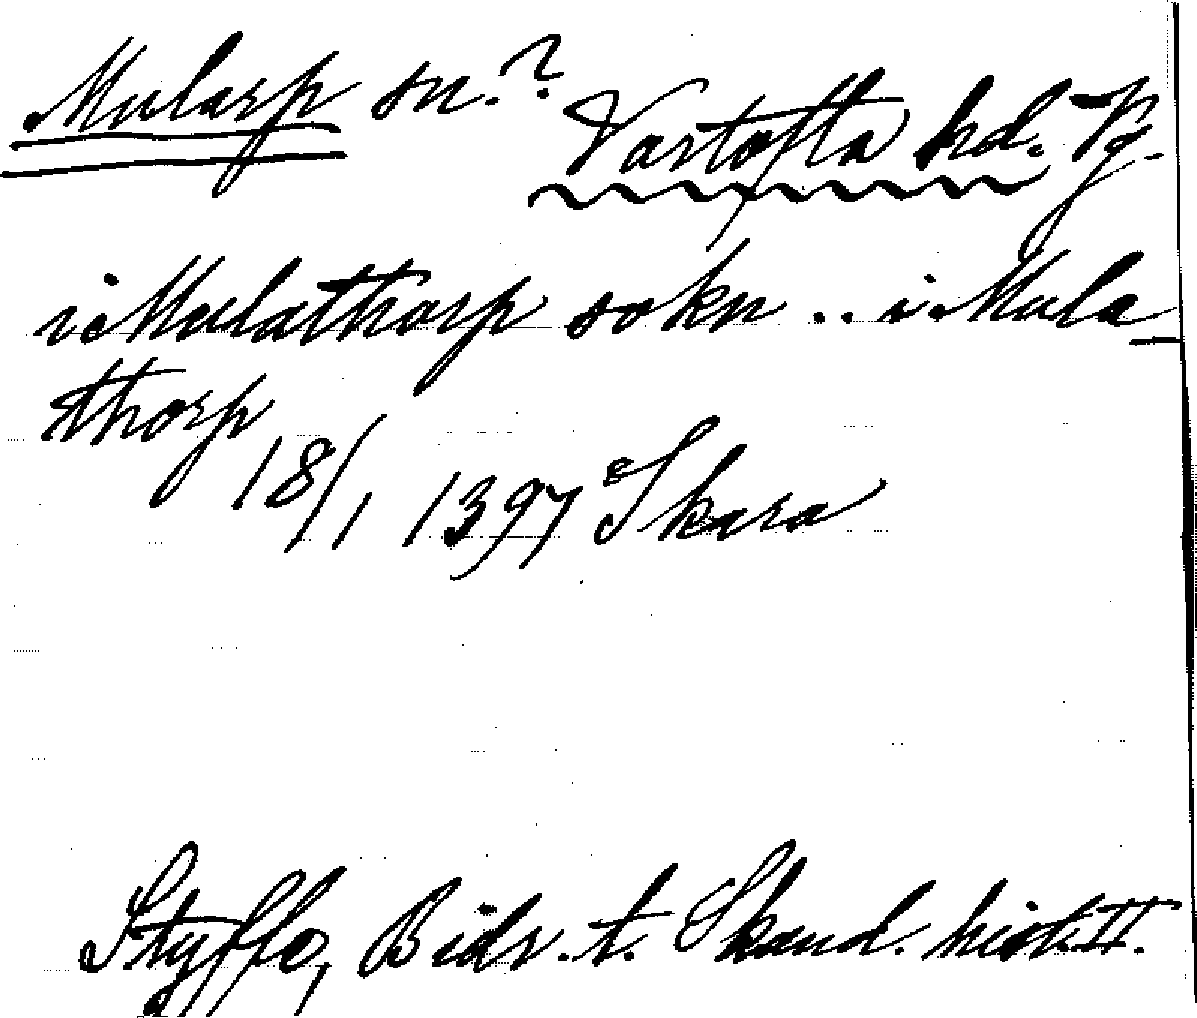 Mularp sn.?
Vartofta hd. Vg.
i Mulathorp sokn .. i Mula-
thorp
18/1 1397 Skara
Styffe, Bidr. t. Skand. hist. II.